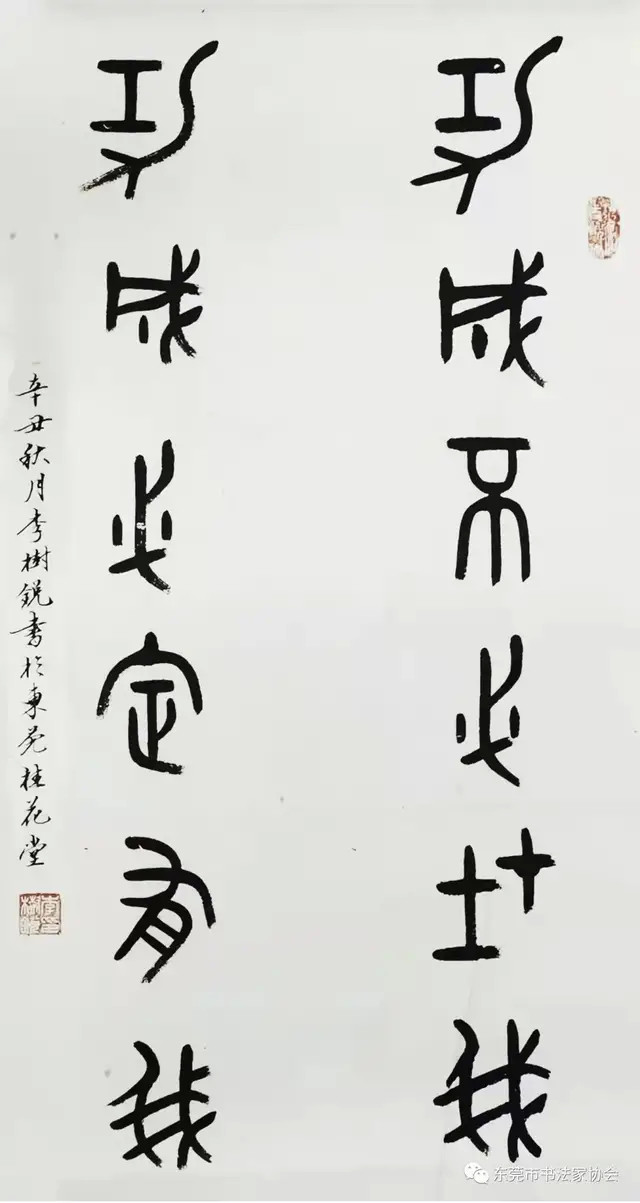 功成不必在我
功成必定有我
辛丑秋月李樹銳書於東莞桂花堂
东莞市书法家协会